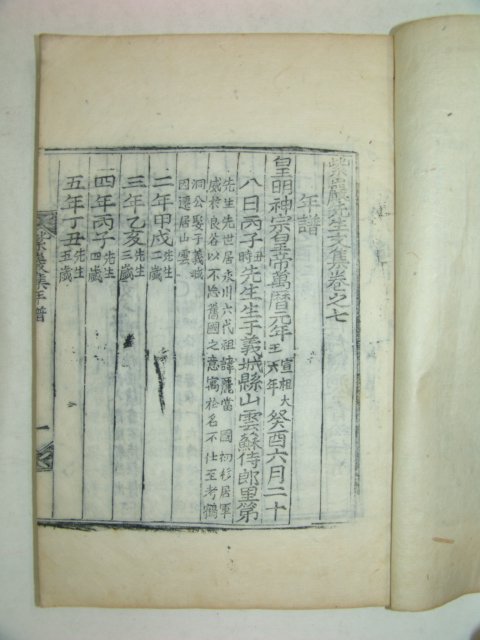 紫巖先生文集卷之七
年譜
皇明神宗皇帝萬曆元年 宣祖大王六年 癸酉六月二十
八日丙子丑時先生生于義城縣山雲蘇侍郎里第
先生先世居永川六代祖諱麗當國初移居軍
威於良谷以不忘舊國之意寓於名不仕至考鶴
洞公娶于義城
因遷居山雲
二年甲戌先生二歲
三年乙亥先生三歲
四年丙子先生四歲
五年丁丑先生五歲
紫巖集年譜
一